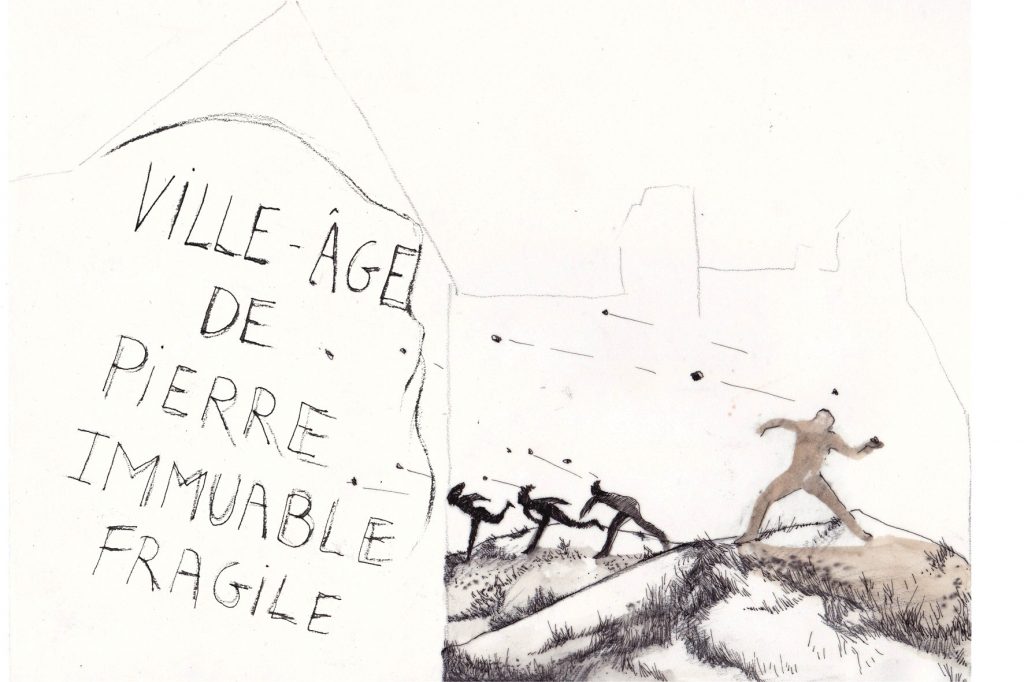 ViLLE-ÂGE
DE
PiERRE
IMMUABLE
FRAGiLE